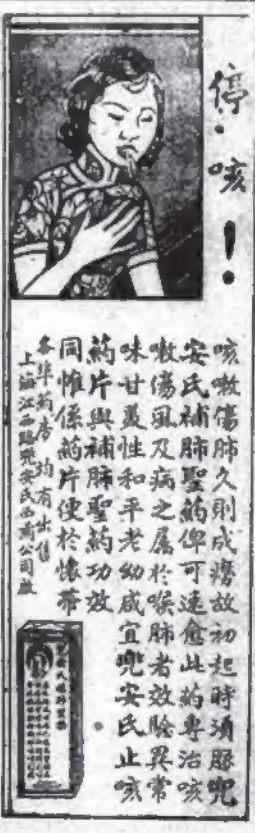 停・咳！
咳嗽傷肺久則成癆故初起時須服兜
安氏補肺聖葯俾可速愈此葯專治咳
嗽傷風及病之屬於喉肺者效騐異常
味甘美性和平老幼咸宜兜安氏止咳
葯片與補肺聖葯功效
同惟係葯片便於懷帶
各埠葯房均有出售
上海江西路兜安氏西葯公司啟